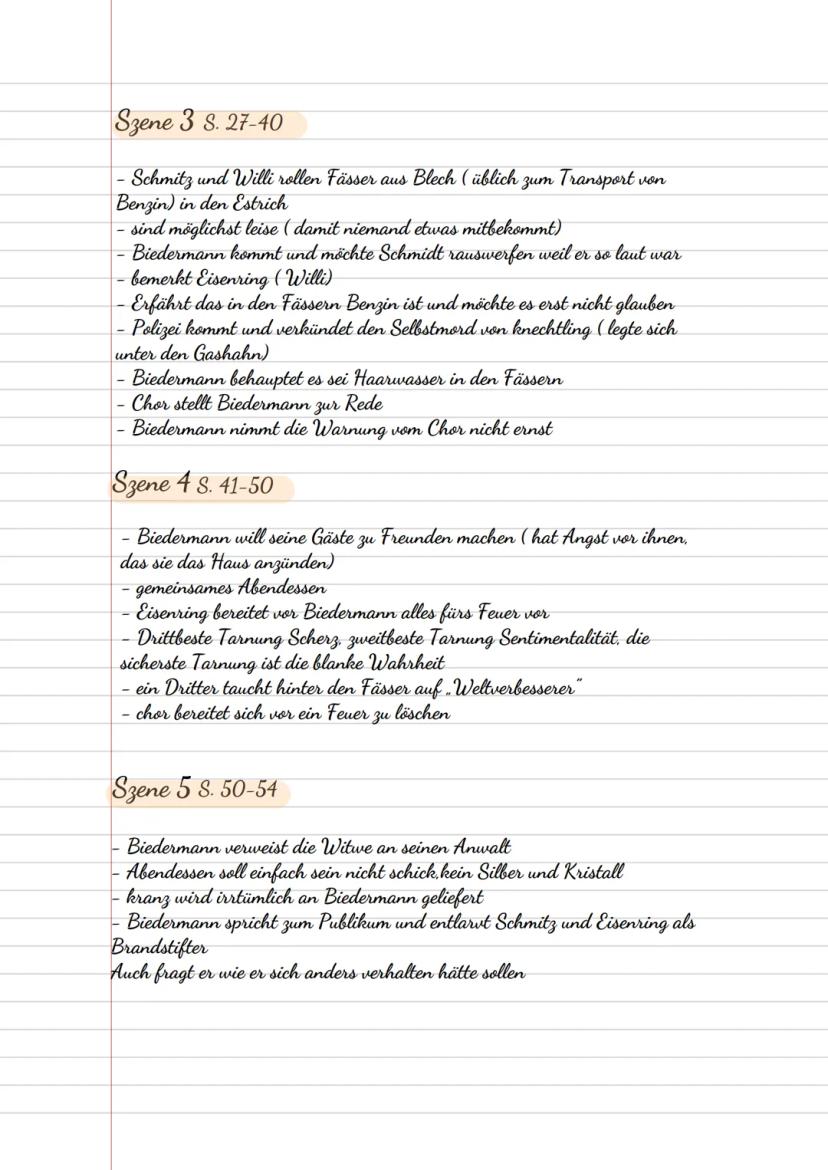 Szene 3 S. 27-40
- Schmitz und Willi rollen Fässer aus Blech ( üblich zum Transport von
Benzin) in den Estrich
- sind möglichst leise ( damit niemand etwas mitbekommt)
- Biedermann kommt und möchte Schmidt rauswerfen weil er so laut war
- bemerkt Eisenring ( Willi)
- Erfährt das in den Fässern Benzin ist und möchte es erst nicht glauben
- Polizei kommt und verkündet den Selbstmord von knechtling ( legte sich
unter den Gashahn)
- Biedermann behauptet es sei Haarwasser in den Fässern
- Chor stellt Biedermann zur Rede
- Biedermann nimmt die Warnung vom Chor nicht ernst
Szene 4 S. 41-50
- Biedermann will seine Gäste zu Freunden machen ( hat Angst vor ihnen,
das sie das Haus anzünden)
- gemeinsames Abendessen
- Eisenring bereitet vor Biedermann alles fürs Feuer vor
- Drittbeste Tarnung Scherz, zweitbeste Tarnung Sentimentalität, die
sicherste Tarnung ist die blanke Wahrheit
- ein Dritter taucht hinter den Fässer auf „Weltverbesserer"
- chor bereitet sich vor ein Feuer zu löschen
Szene 5 S. 50-54
- Biedermann verweist die Witwe an seinen Anwalt
- Abendessen soll einfach sein nicht schick,kein Silber und Kristall
- kranz wird irrtümlich an Biedermann geliefert
- Biedermann spricht zum Publikum und entlarvt Schmitz und Eisenring als
Brandstifter
Auch fragt er wie er sich anders verhalten hätte sollen